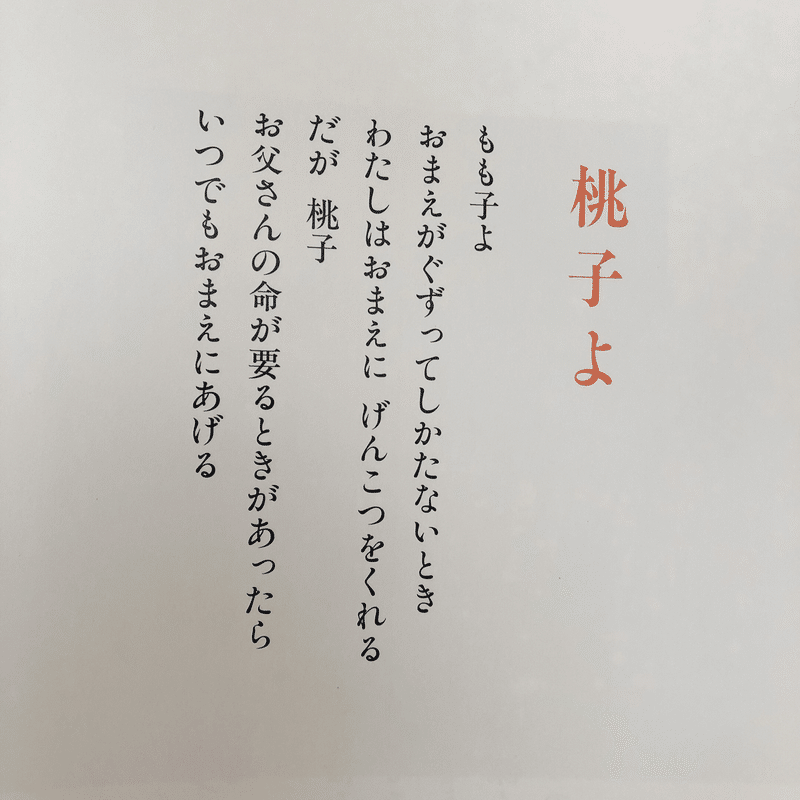 桃子よ
もも子よ
おまえがぐずってしかたないとき
わたしはおまえに げんこつをくれる
だが 桃子
お父さんの命が要るときがあったら
いつでもおまえにあげる